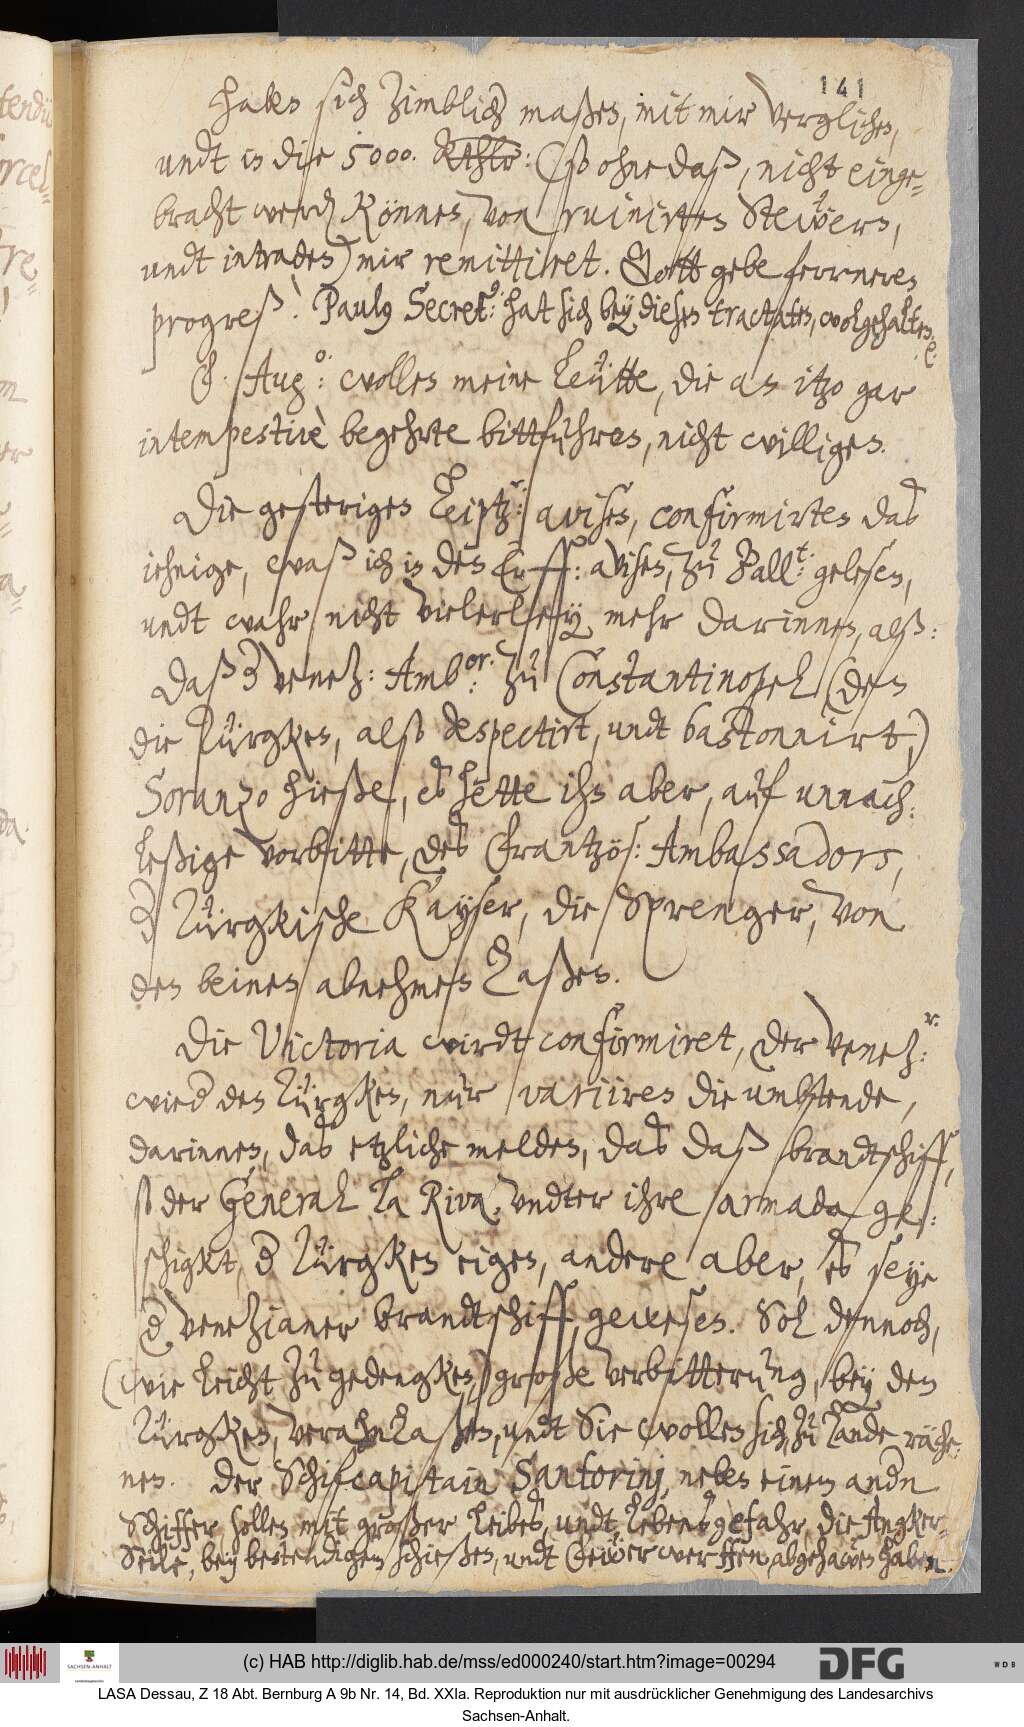 141
haben sich zimblicher maßen, mit mir verglichen,
undt in die 5000. Rthlr: (so ohne daß, nicht einge-
bracht werden können, von ruinirten Steüern,
undt intraden) mir remittiret. Gott gebe ferrneren
progreß! Paulus Secret: hat sich bey diesen tractaten, wolgehalten.
Aug: wollen meine Leütte, die an itzo gar
intempestivè begehrte bittfuhren, nicht willigen.
Die gesterigen Leiptz: avisen, confirmirten das
iehnige, waß ich in den Erff: avisen, zu Ball: gelesen,
undt wahr nicht vielerley mehr darinnen, alß:
daß der Venez: Ambor: zu Constantinopel (den
die Türgken, also despectirt, undt bastonnirt,)
Soranzo hieße, es hette ihn aber, auf unnach:
leßige vorbitte, des Frantzös: Ambassadors,
der Türgkische Kayser, die Sprenger, von
den beinen abnehmen laßen.
Die Victoria wirdt confirmiret, der Venezr:
wieder den Türgken, nur variiren die umbstende,
darinnen, das etzliche melden, das daß brandtschiff,
so der General la Riva, undter ihre armada ge-
schigkt, der Türgken eigen, andere aber, es seye
der Venezianer brandtschiff, gewesen. Sol dennoch,
(wie leicht zu gedengken) große verbitterung, bey den
Türgken, veranlaßen, undt Sie wollen sich, zu Lande räche-
nen. Der Schifcapitain Santorinj, neben einem andern
Schiffer sollen mit großer Leibes, undt Lebensgefahr, die Angker-
Seile, bey bestendigem schießen, undt Feüerwerffen, abgehawen haben.
(c) HAB http://diglib.hab.de/mss/ed000240/start.htm?image=00294
SACHSEN-ANHALT
DFG
WDB
LASA Dessau, Z 18 Abt. Bernburg A 9b Nr. 14, Bd. XXIa. Reproduktion nur mit ausdrücklicher Genehmigung des Landesarchivs
Sachsen-Anhalt.